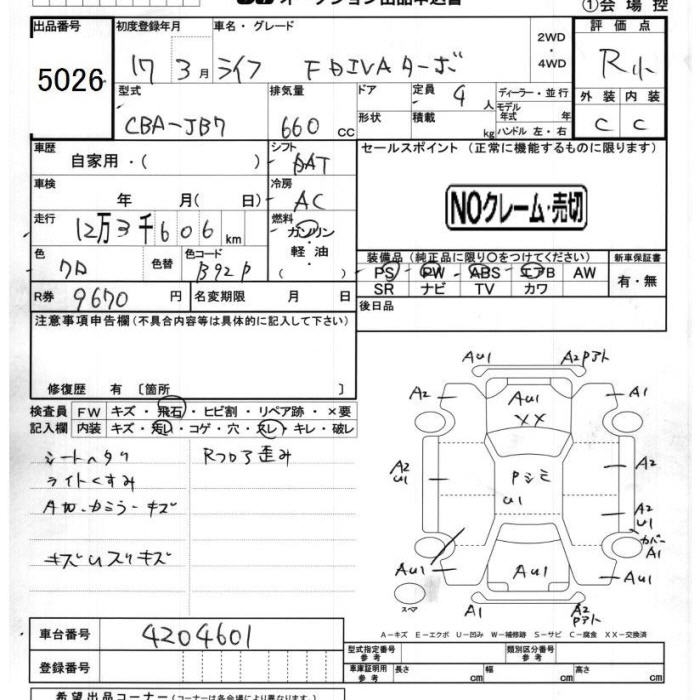 オークション出品申込書 ①会場控
出品番号 初度登録年月 車名・グレード 2WD・4WD 評価点
5026 17年 3月 ライフ F DIVAターボ R小
型式 排気量 ドア 定員 4人 ディーラー・並行 外装 内装
CBA-JB7 660cc 形状 積載 kg モデル年式 年 ハンドル 左・右 C C
車歴 自家用・( ) シフト DAT セールスポイント (正常に機能するものに限ります)
車検 年 月( 日) 冷房 AC NOクレーム・売切
走行 12万3千606km 燃料 ガソリン・軽油・( )
装備品(純正品に限り○をつけてください) 新車保証書
色 クロ 色替 色コード B92P PS PW ABS エアB AW 有・無
SR ナビ TV カワ
R券 9670円 名変期限 月 日 後日品
注意事項申告欄(不具合内容等は具体的に記入して下さい)
修復歴 有 [箇所 ]
検査員 FW キズ・飛石・ヒビ割・リペア跡・×要
記入欄 内装 キズ・汚れ・コゲ・穴・スレ・キレ・破レ
シートヘタリ Rフロア歪み
ライトくすみ
キズUスリキズ
AU1 A2
A2 AU1 A1
XX
A2 U1 Pシミ A2
U1 A2 U1
カバーA1
AU1 AU1 AU1
スペア A1 A2
A-キズ E-エクボ U-凹み W-補修跡 S-サビ C-腐食 XX-交換済
車台番号 4204601
登録番号
型式指定番号 参考 類別区分番号 参考
車庫証明用 参考 長さ cm 幅 cm 高さ cm
希望出品コーナー(コーナー名は各会場により異なります。)